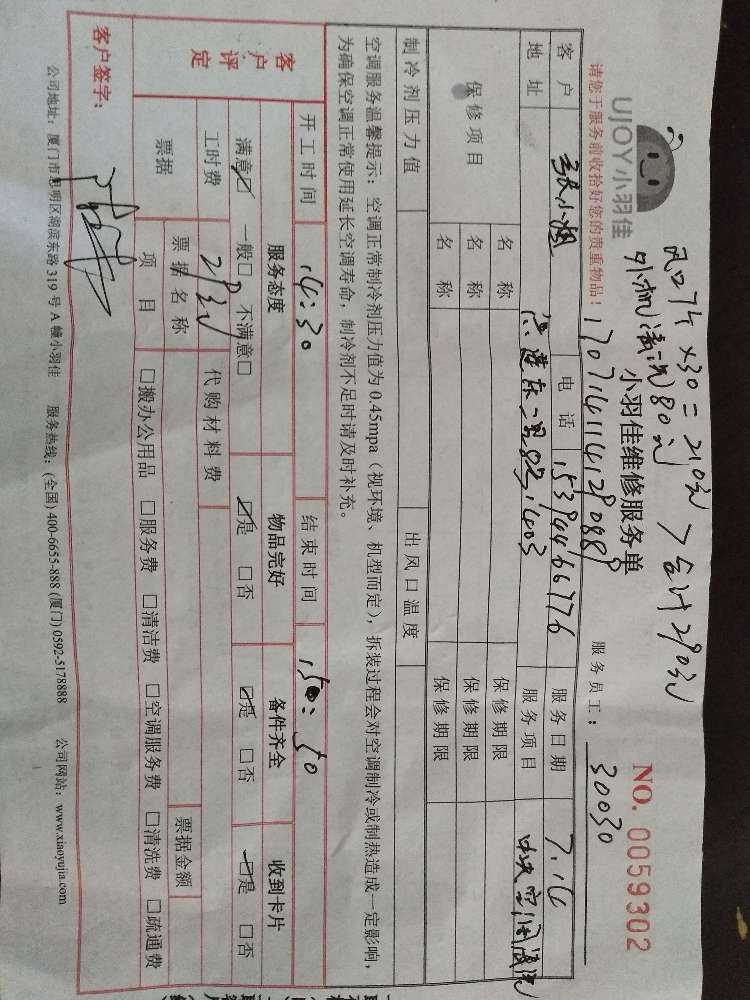 风口7个×30=210元 > 合计290元
外机清洗80元
UJOY小羽佳
小羽佳维修服务单
NO. 0059302
请您于服务前收拾好您的贵重物品！
服务员工： 30030
客户 电话 15394466776 服务日期 7.16
地址 1403 服务项目 中央空调清洗
保修项目 名称 保修期限
名称 保修期限
名称 保修期限
制冷剂压力值 出风口温度
空调服务温馨提示：空调正常制冷剂压力值为 0.45mpa（视环境、机型而定），拆装过程会对空调制冷或制热造成一定影响，
为确保空调正常使用延长空调寿命，制冷剂不足时请及时补充。
开工时间 14:30 结束时间 15:50
客户评定 服务态度 物品完好 备件齐全 收到卡片
满意☑ 一般□ 不满意□ ☑是 □否 ☑是 □否 ☑是 □否
工时费 290元 代购材料费
票据 票据名称 票据金额
项目 □搬办公用品 □服务费 □清洁费 □空调服务费 □清洗费 □疏通费
客户签字：
公司地址：厦门市思明区湖滨东路 319 号 A 幢小羽佳 服务热线：(全国) 400-6655-888 (厦门) 0592-5178888 公司网站：www.xiaoyujia.com